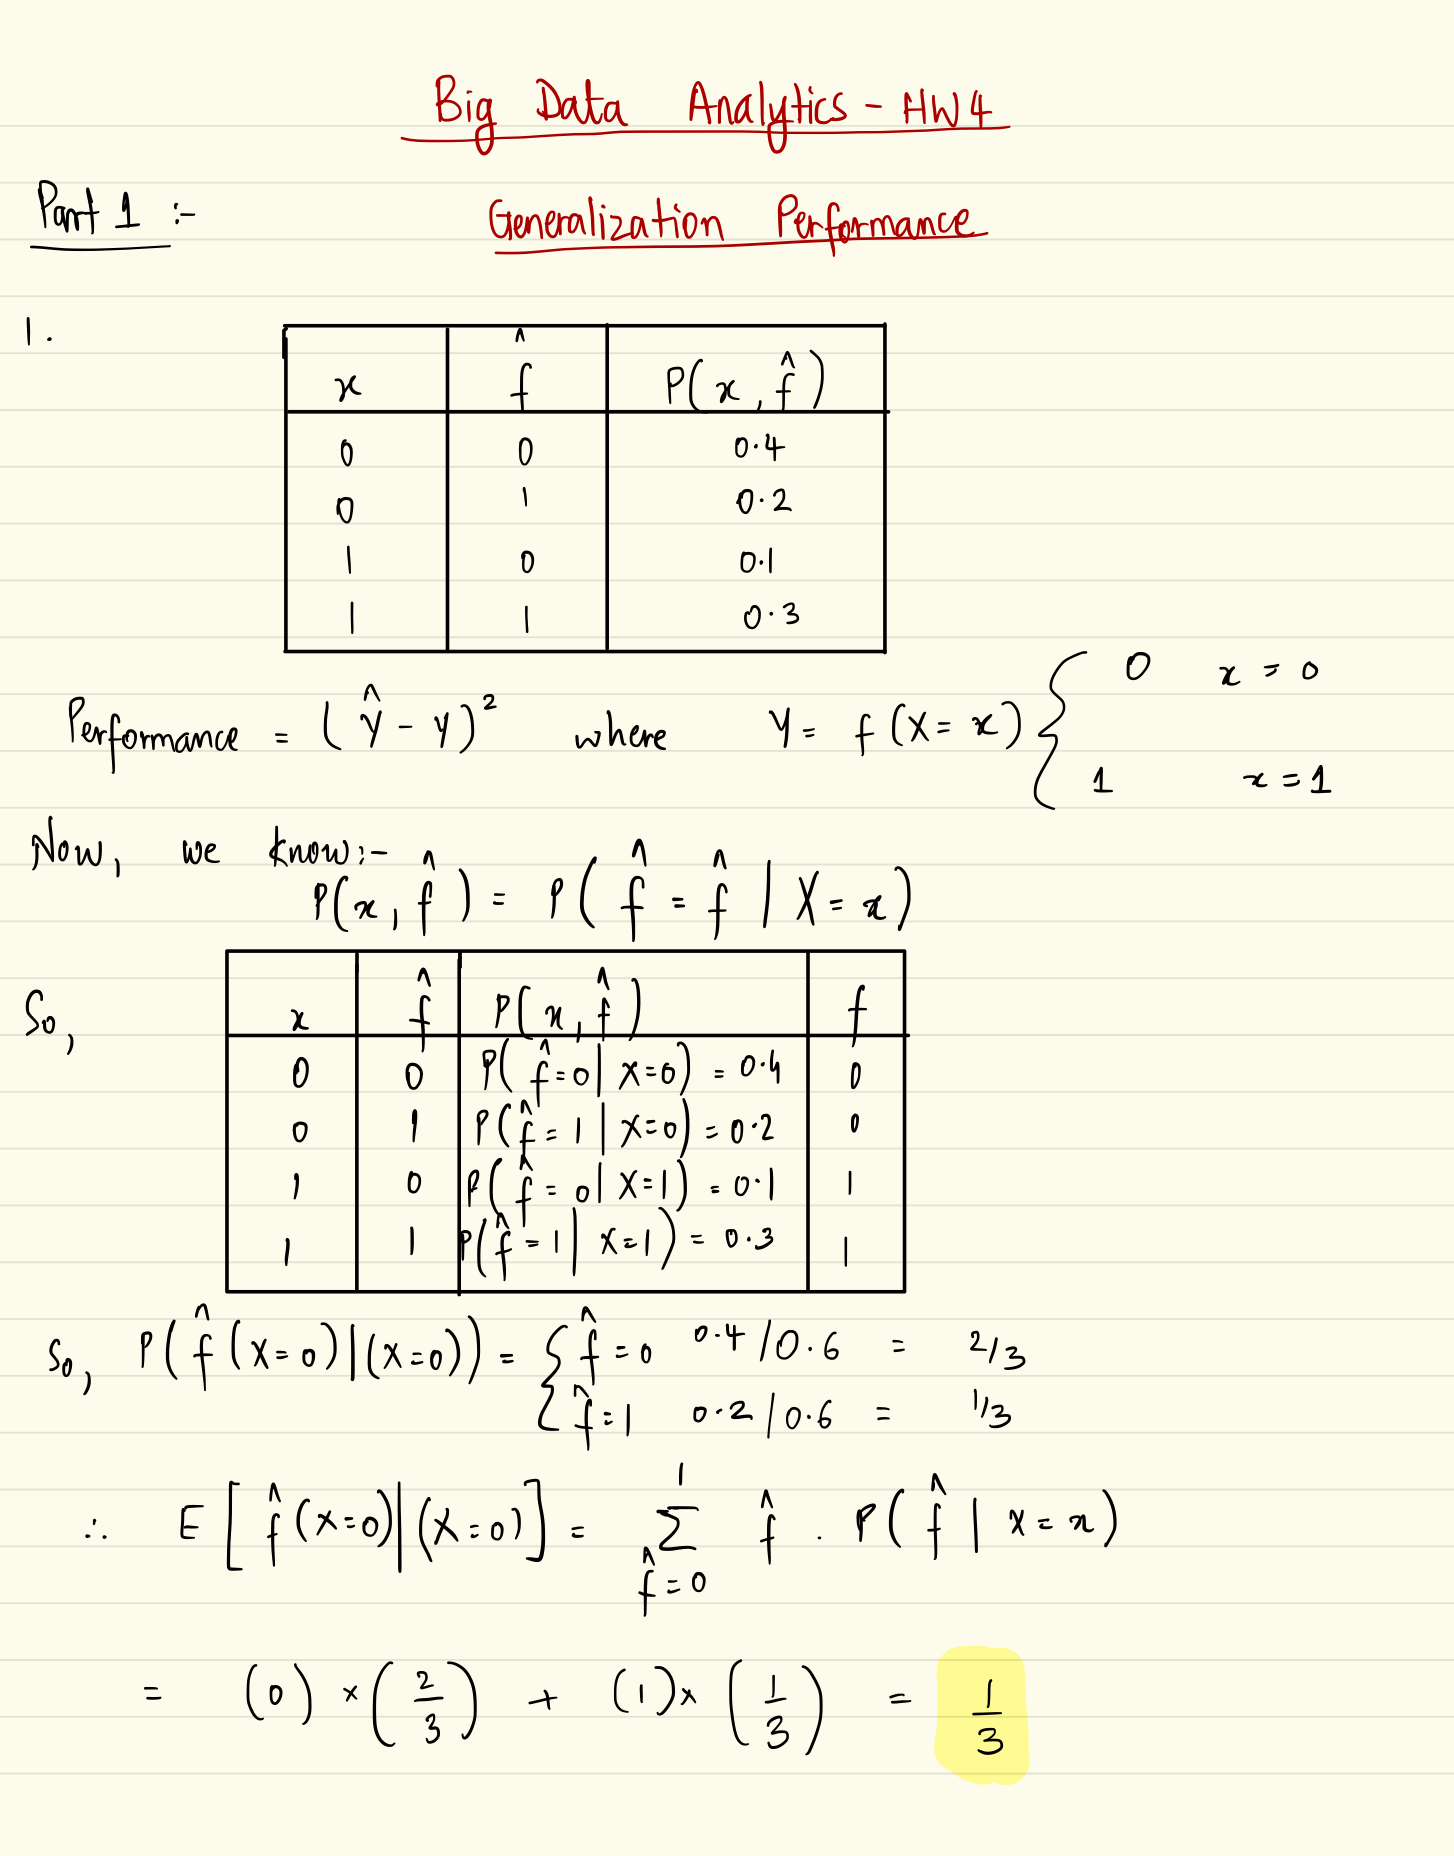 Big Data Analytics - HW4
Part 1 :-
Generalization Performance
1.
x f̂ P(x, f̂)
0 0 0.4
0 1 0.2
1 0 0.1
1 1 0.3
Performance = (Ŷ - Y)² where Y = f(X = x) { 0 x = 0
1 x = 1
Now, we know:-
P(x, f̂) = P(f̂ = f̂ | X = x)
So,
x f̂ P(x, f̂) f
0 0 P(f̂ = 0 | X=0) = 0.4 0
0 1 P(f̂ = 1 | X=0) = 0.2 0
1 0 P(f̂ = 0 | X=1) = 0.1 1
1 1 P(f̂ = 1 | X=1) = 0.3 1
So, P(f̂(X=0)|(X=0)) = { f̂ = 0 0.4/0.6 = 2/3
f̂ = 1 0.2/0.6 = 1/3
∴ E[f̂(X=0)|(X=0)] = 1 Σ f̂=0 f̂ . P(f̂ | X = x)
= (0) × (2/3) + (1) × (1/3) = 1/3